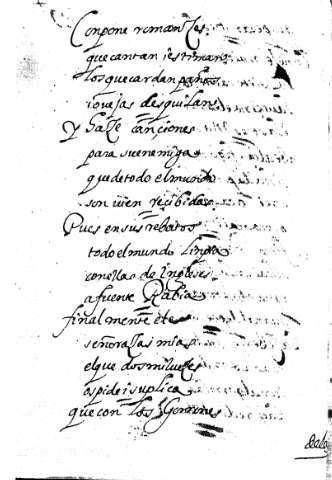 Conpone romanzes
que cantan i estiman
los que cardan paños
i ovejas desquilan
y haze canciones
para su enemiga
que de todo el mundo
son vien recibidas
Pues en sus rebatos
todo el mundo linpia
con ellas de Ingleses
a fuente Rabia
finalmente ete
señorazas mias
el que dos mil vezes
os pide i suplica
que con los Gorrones
de las